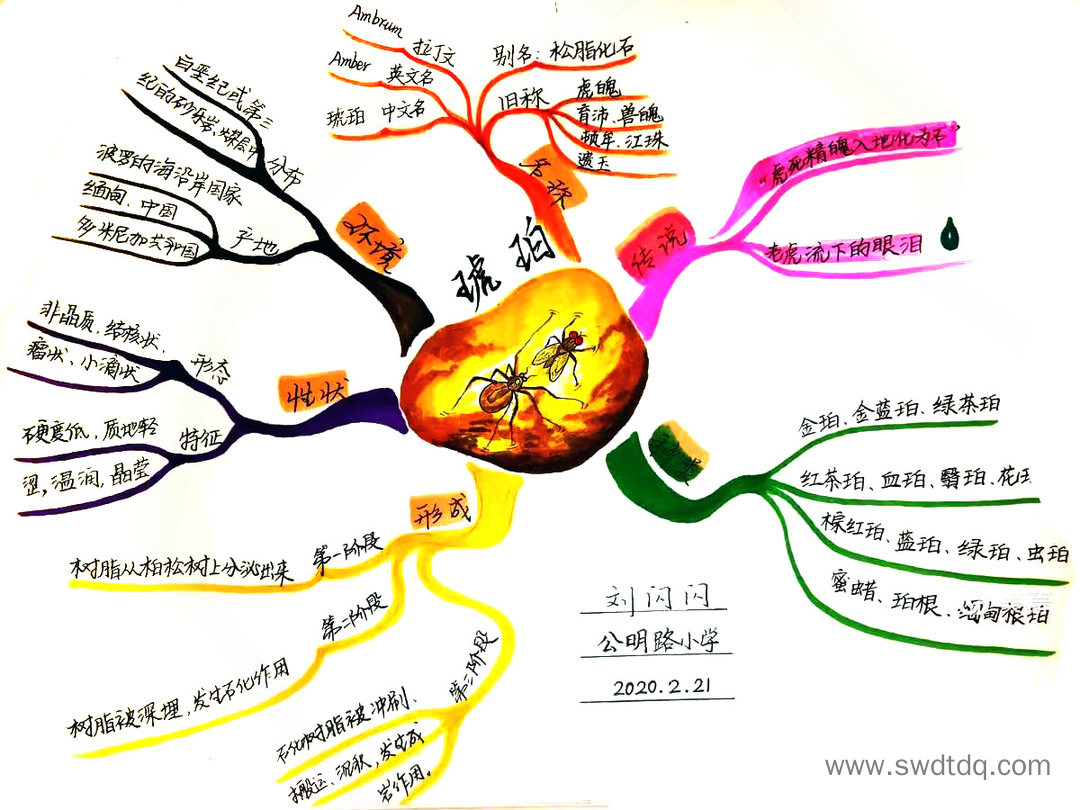 琥珀
名称
Ambrum 拉丁文
Amber 英文名
琥珀 中文名
别名：松脂化石
旧称
虎魄
育沛、兽魄
顿牟、江珠
遗玉
传说
“虎死精魄入地化为石”
老虎流下的眼泪
金珀、金蓝珀、绿茶珀
红茶珀、血珀、翳珀、花珀
棕红珀、蓝珀、绿珀、虫珀
蜜蜡、珀根、缅甸根珀
形成
第一阶段
树脂从柏松树上分泌出来
第二阶段
树脂被深埋，发生石化作用
第三阶段
石化树脂被冲刷、
搬运、沉积，发生成
岩作用。
性状
形态
非晶质，结核状、
瘤状、小滴状
特征
硬度低，质地轻
涩，温润，晶莹
环境
分布
白垩纪或第三
纪的砂砾岩，煤层中
产地
波罗的海沿岸国家
缅甸、中国
多米尼加共和国
刘闪闪
公明路小学
2020.2.21
www.swdtdq.com